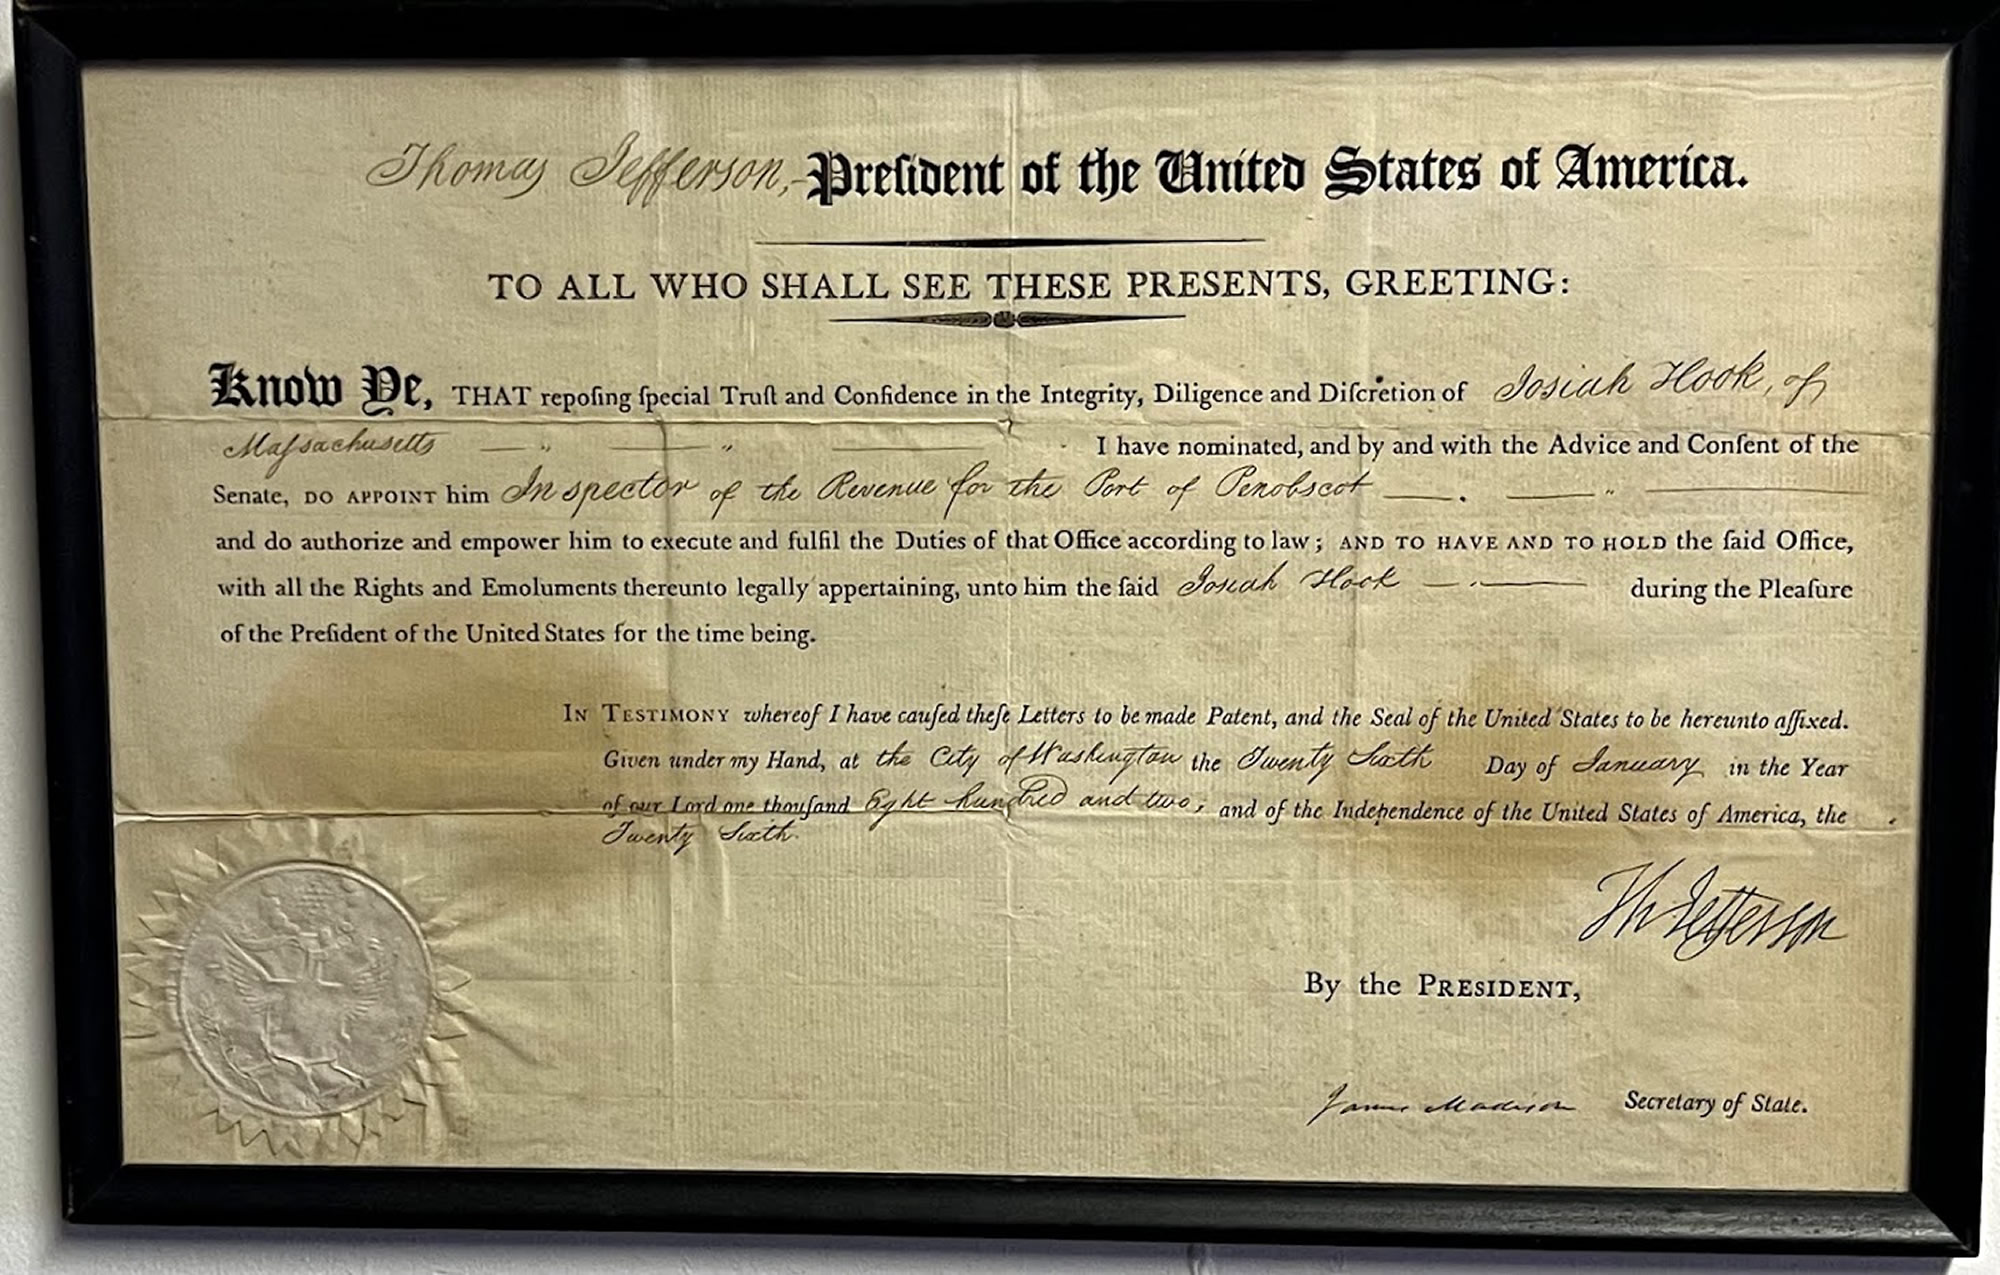 Thomas Jefferson, Preſident of the United States of America.
TO ALL WHO SHALL SEE THESE PRESENTS, GREETING:
Know Ye, THAT repoſing ſpecial Truſt and Confidence in the Integrity, Diligence and Diſcretion of Josiah Hook, of
Maſsachusetts — " — " — I have nominated, and by and with the Advice and Conſent of the
Senate, DO APPOINT him Inspector of the Revenue for the Port of Penobscot — . — " —
and do authorize and empower him to execute and fulfil the Duties of that Office according to law; AND TO HAVE AND TO HOLD the ſaid Office,
with all the Rights and Emoluments thereunto legally appertaining, unto him the ſaid Josiah Hook — . — during the Pleaſure
of the Preſident of the United States for the time being.
IN TESTIMONY whereof I have cauſed theſe Letters to be made Patent, and the Seal of the United States to be hereunto affixed.
Given under my Hand, at the City of Washington the Twenty Sixth Day of January in the Year
of our Lord one thouſand Eight hundred and two; and of the Independence of the United States of America, the
Twenty Sixth.
Th Jefferson
By the PRESIDENT,
James Madison Secretary of State.